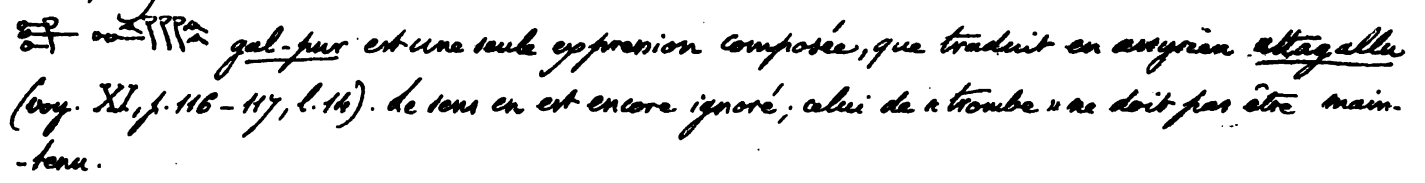 gal-pur est une seule expression composée, que traduit en assyrien attagallu
(voy. XI, p. 116 – 117, l. 14). Le sens en est encore ignoré ; celui de « trombe » ne doit pas être main-
-tenu.